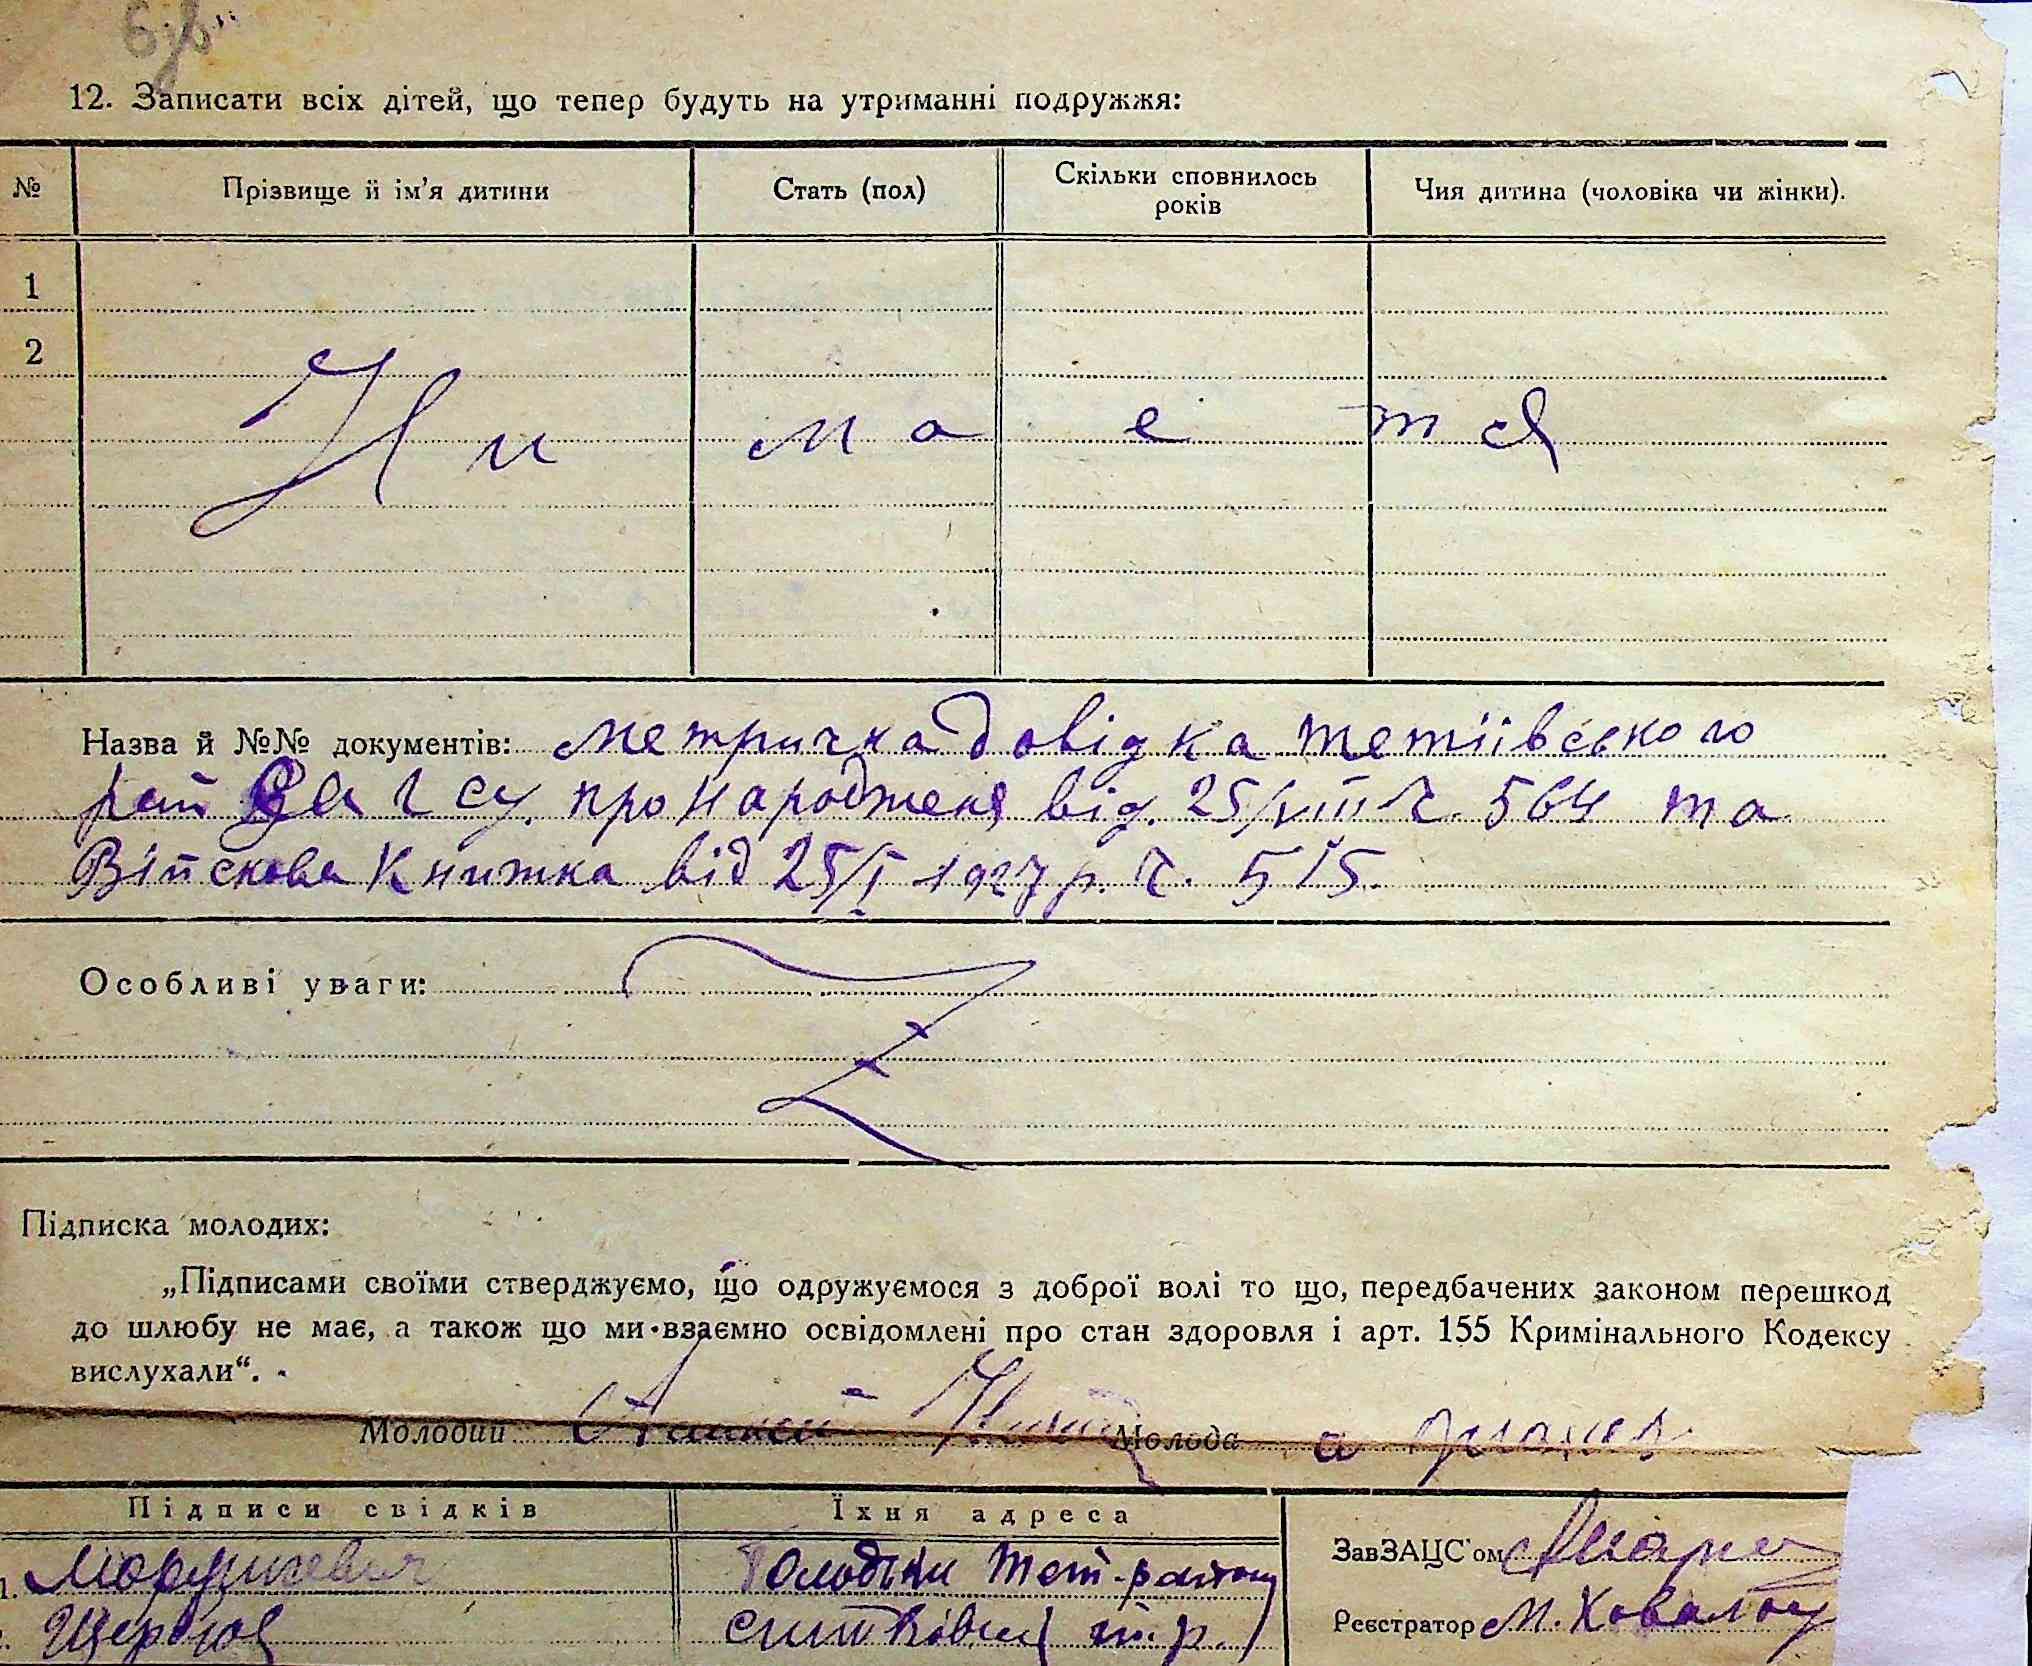 12. Записати всіх дітей, що тепер будуть на утриманні подружжя:
№ Прізвище й ім'я дитини Стать (пол) Скільки сповнилось років Чия дитина (чоловіка чи жінки).
1
2
Ни ма е т ся
Назва й №№ документів: метрична довідка тетіївського
рай про народженя від. 25/VIII ч. 564 та
Війскова Книжка від 25/I 1927 р. ч. 515.
Особливі уваги:
Підписка молодих:
„Підписами своїми стверджуємо, що одружуємося з доброї волі то що, передбачених законом перешкод
до шлюбу не має, а також що ми взаємно освідомлені про стан здоровля і арт. 155 Кримінального Кодексу
вислухали“.
Молодий Молода
Підписи свідків Їхня адреса
ЗавЗАЦС'ом
1.
Реєстратор М.